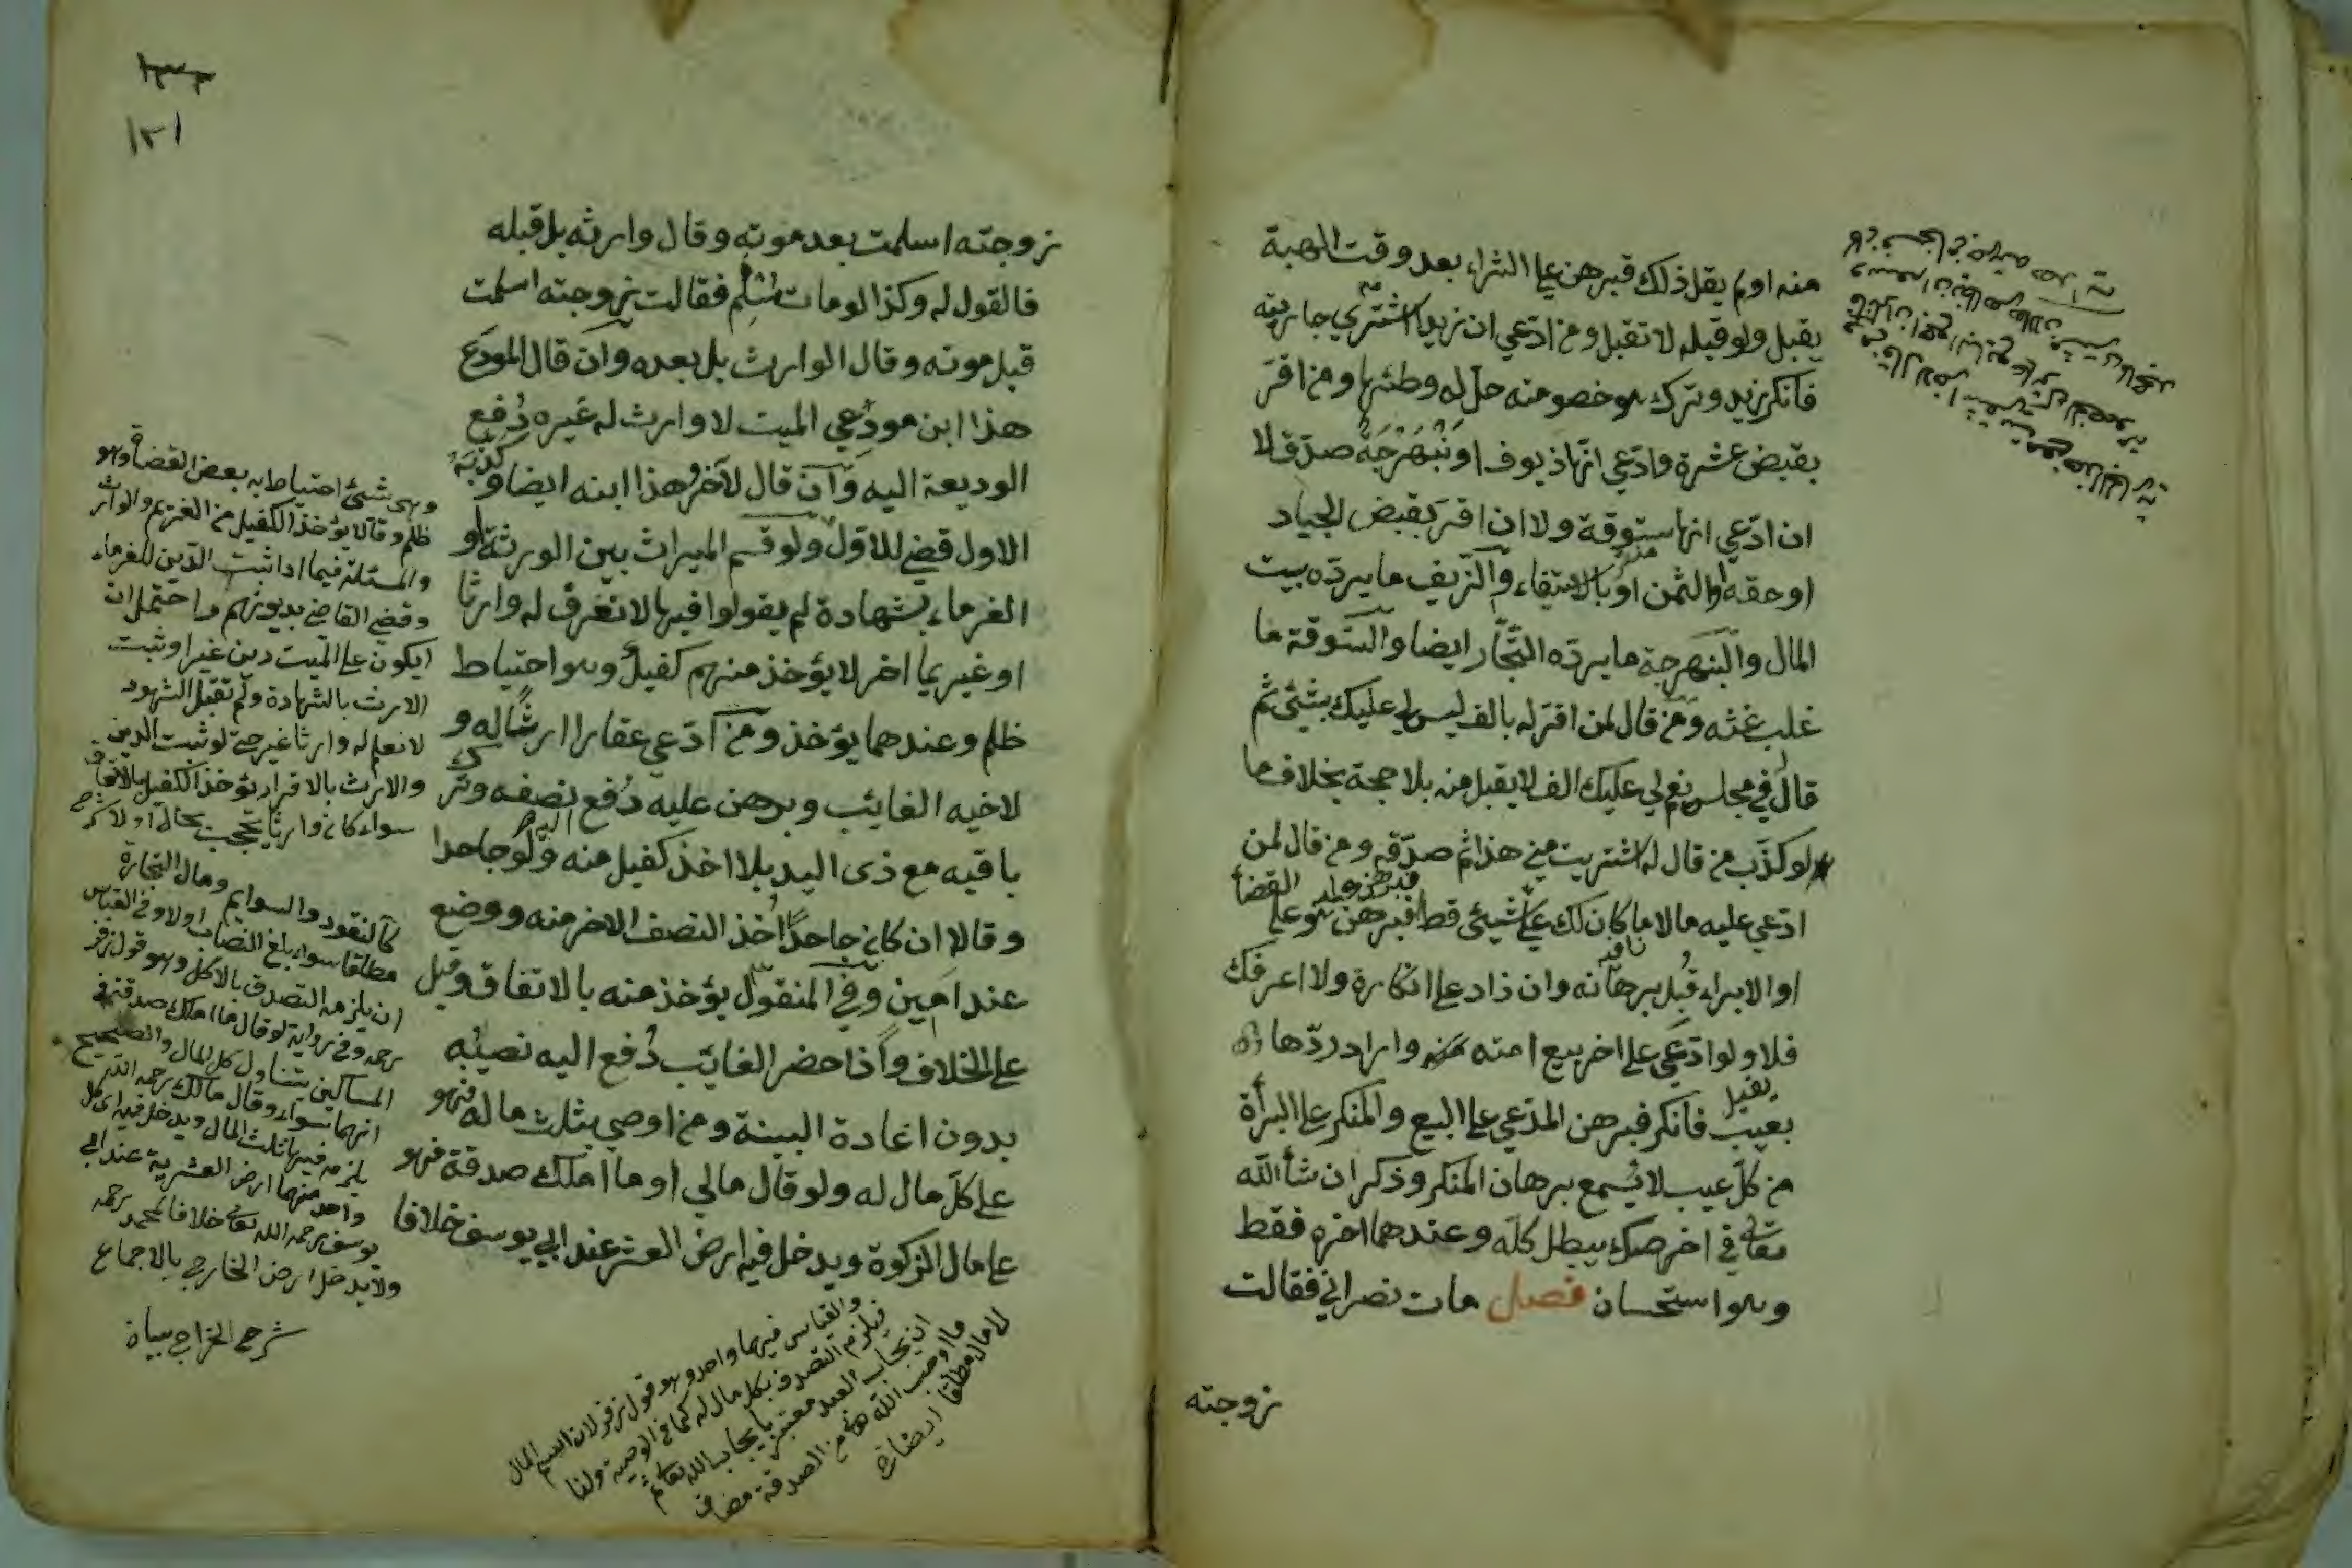 منه او لم يقل ذلك فبرهن على الشراء بعد وقت الهبة
يقبل ولو قبله لا تقبل ومن ادّعي ان زيدا اشتري جاريته
فأنكر زيد وترك هو خصومته حلّ له وطئها ومن اقرّ
بقبض عشرة وادّعي انّها زيوف او نَبَهْرَجَةٌ صدّق لا
ان ادّعي انها ستوقة ولا ان اقرّ بقبض الجياد
او حقه او الثمن او بالاستيفاء والزيف ما يردّه بيت
المال والبنهرجة ما يردّه التجّار ايضا والستوقة ما
غلب غشه ومن قال لمن اقرّ له بالف ليس لي عليك بشئ ثم
قال في مجلسه نعم لي عليك الف لا يقبل منه بلا حجة بخلاف ما
لو كذّب من قال له اشتريت مني هذا ثم صدّقه ومن قال لمن
ادّعي عليه مالا ما كان لك عليّ شيئ قط فبرهن هو على القضأ
او الابراء قُبل برهانه وان زاد على انكاره ولا اعرفك
فلا ولو ادّعي على اخر بيع امته منه واراد ردّها
بعيب فأنكر فبرهن المدّعي على البيع والمنكر على البرأة
من كلّ عيب لا يُسمع برهان المنكر وذكر ان شأ الله
تعالى في اخر صك يبطل كلّه وعندهما اخره فقط
وهو استحسان فصل مات نصراني فقالت
زوجته
١٢١
زوجته اسلمت بعد موته وقال وارثه بل قبله
فالقول له وكذا لو مات مسلم فقالت زوجته اسلمت
قبل موته وقال الوارث بل بعده وان قال المودَع
هذا ابن مودِعي الميت لا وارث له غيره دُفع
الوديعة اليه وان قال لآخر هذا ابنه ايضا وكذّبه
الاول قضي للاوّل ولو قسم الميراث بين الورثة او
الغرماء بشهادة لم يقولوا فيها لا نعرف له وارثا
او غريما اخر لا يؤخذ منهم كفيل وهو احتياط
ظلم وعندهما يؤخذ ومن ادّعي عقارا ارثًا له و
لاخيه الغايب وبرهن عليه دُفع اليه نصفه وترك
باقيه مع ذى اليد بلا اخذ كفيل منه ولو جاحدا
وقالا ان كان جاحدًا اُخذ النصف الاخر منه ووضع
عند امين وفي المنقول يؤخذ منه بالاتفاق وقيل
على الخلاف واذا حضر الغايب دُفع اليه نصيبُه
بدون اعادة البينة ومن اوصي بثلث ماله فهو
على كلّ مال له ولو قال مالي او ما املك صدقة فهو
على مال الزكوة ويدخل فيه ارض العشر عند ابي يوسف خلافا
وهي شئ احتياط به بعض القضاة وهو
ظلم وقالا يؤخذ الكفيل من الغريم والوارث
والمسئلة فيما اذا ثبت الدّين للغرماء
وقضي القاضي بديونهم واحتمل ان
يكون على الميت دين غير او ثبت
الارث بالشهادة ولم تقبل الشهود
لا نعلم له وارثا غير حتى لو ثبت الدين
والارث بالاقرار يؤخذ الكفيل بالاتفاق
سواء كان وارثا يحجب بحال او لا
كالنقود والسوايم ومال التجارة
مطلقا سواء بلغ النصاب او لا وفي القياس
ان يلزمه التصدق بالكل وهو قول زفر
رحمه وفي رواية لو قال ما املك صدقة في
المساكين يتناول كل المال والصحيح
انهما سواء وقال مالك رحمه الله
يلزمه فيها ثلث المال ويدخل فيه اى كل
واحد منهما ارض العشرية عند ابي
يوسف رحمه الله تعالى خلافا لمحمد رحمه
ولا يدخل ارض الخارجي بالاجماع
والقياس فيهما واحد وهو قول زفر لان اسم المال
فيلزم التصدق بكل مال له كما في الوصية ولنا
ان يجاب العبد معتبر بايجاب الله تعالى
ما اوجب الله من الصدقة مضاف
لا مال مطلقا